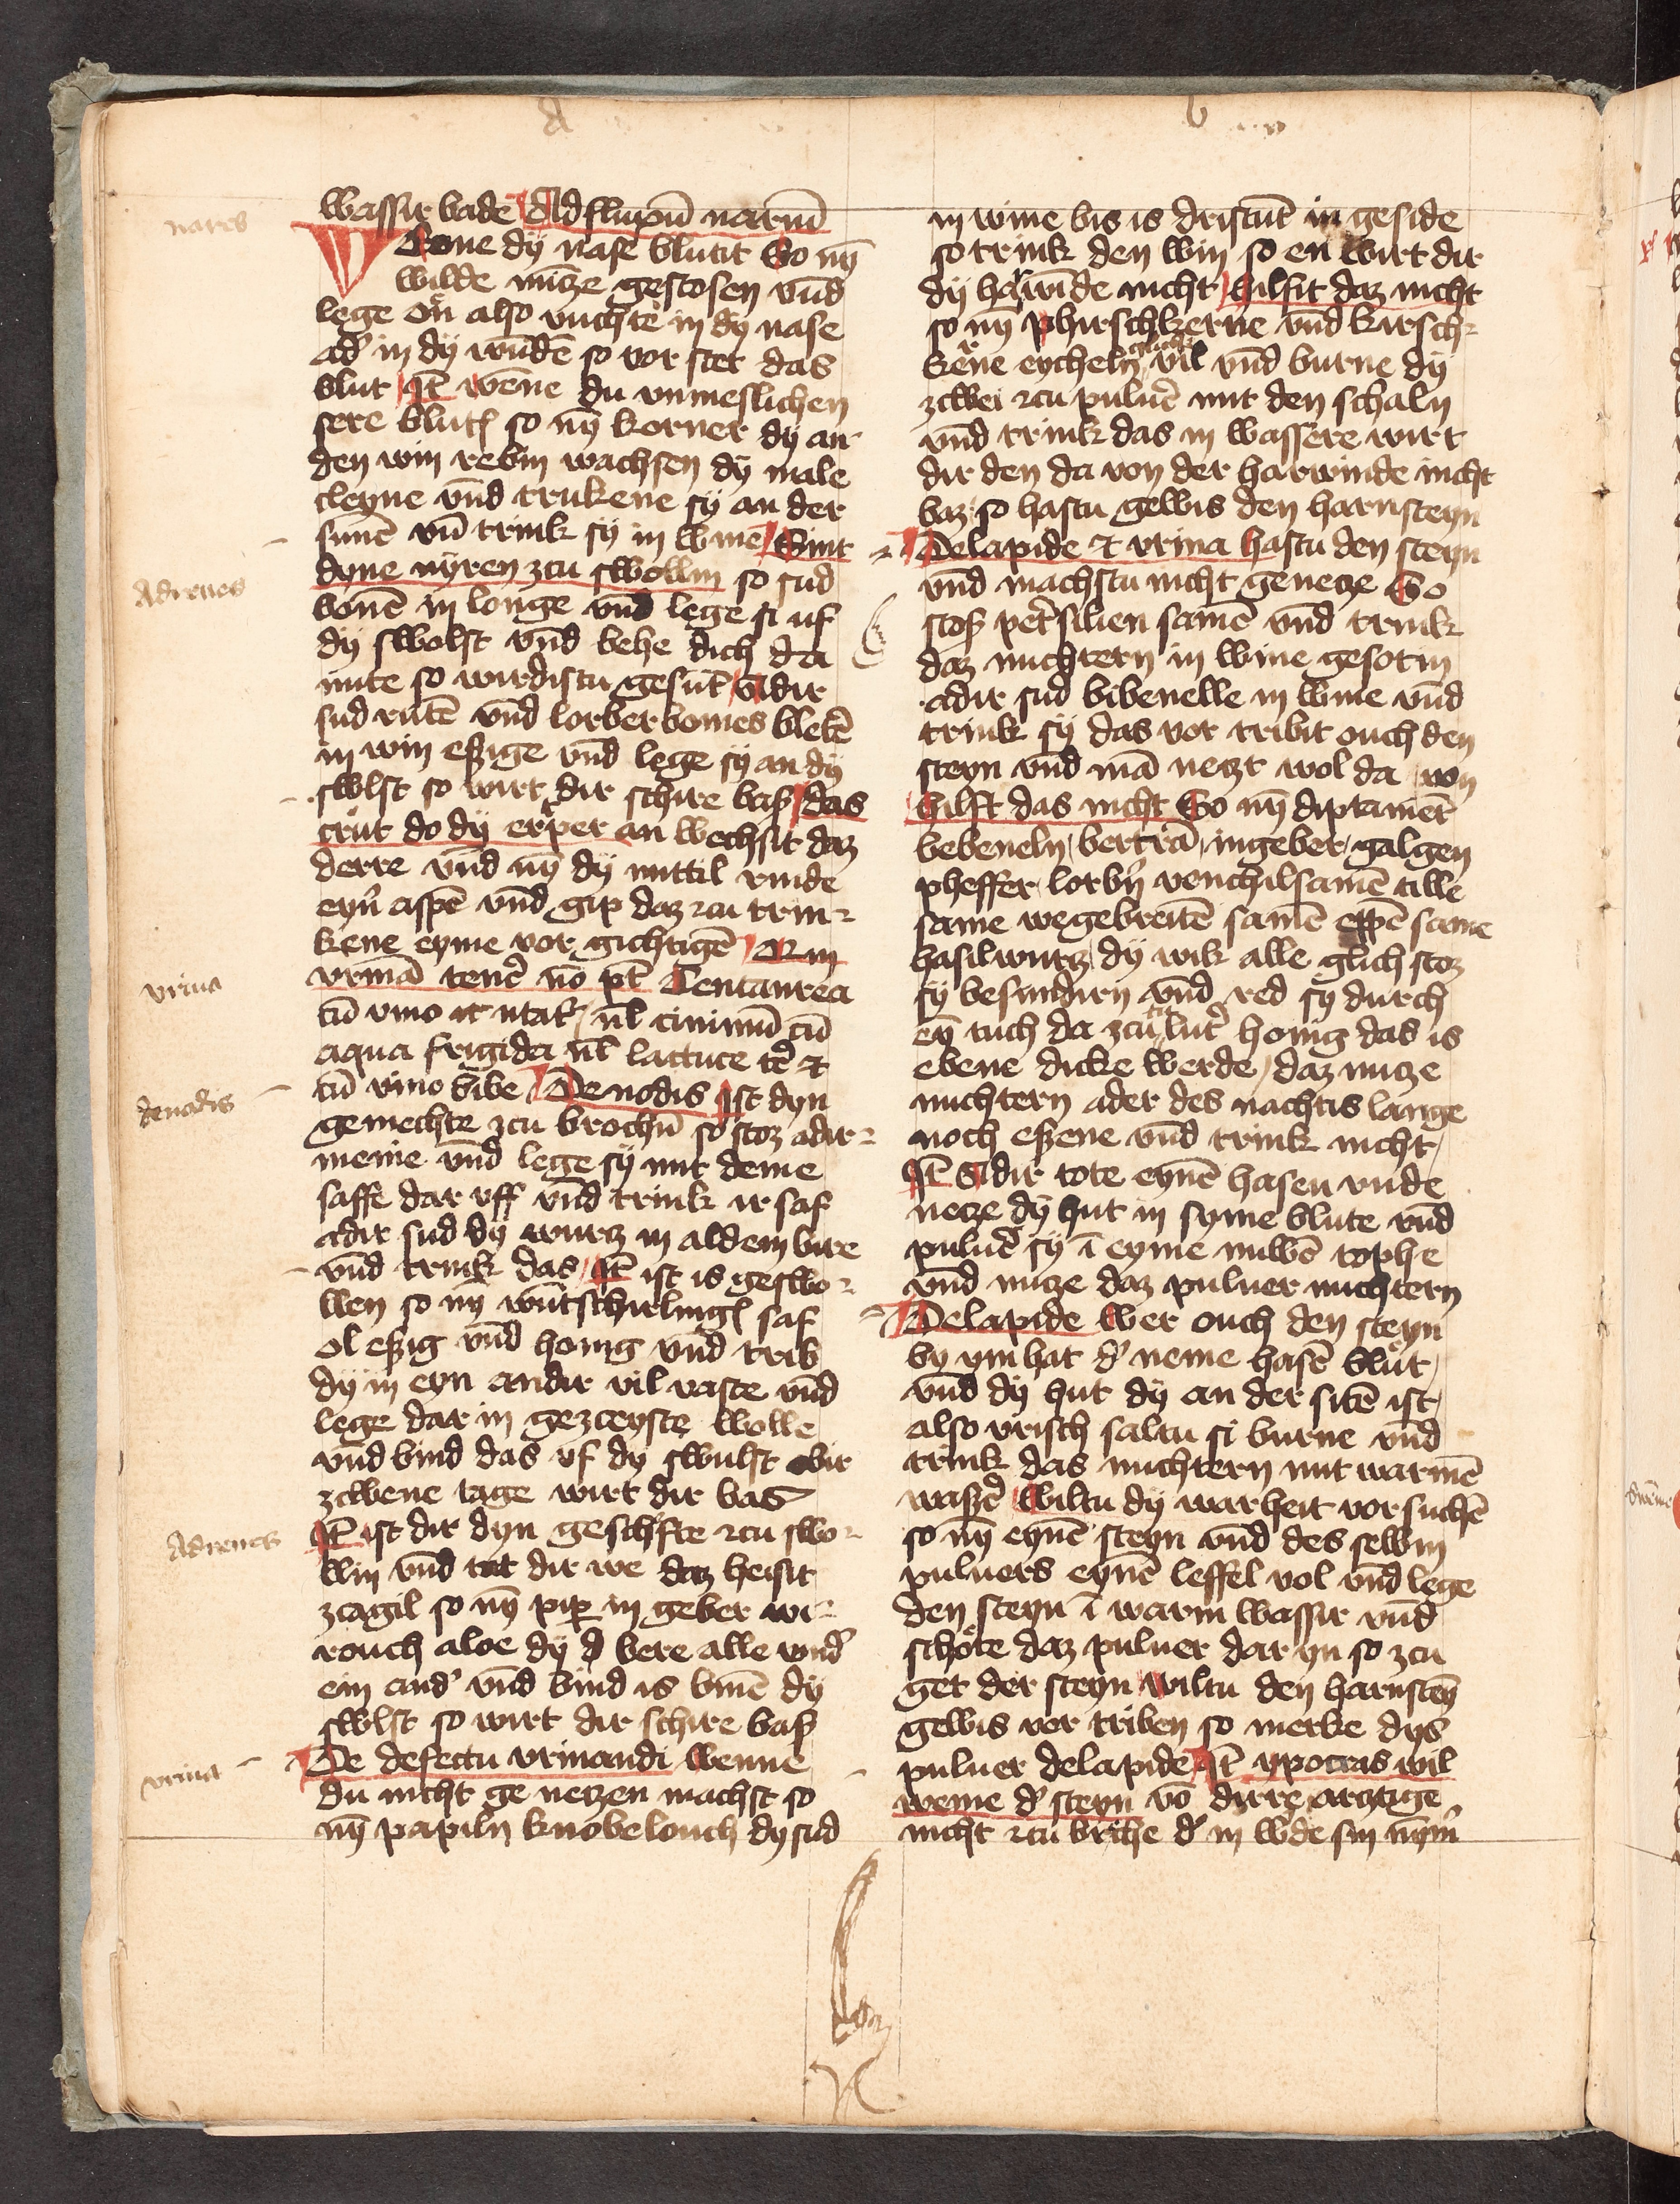 a
b
nares
wassir bade Ad fluxū nariū
Wene dÿ nase blutit So nÿ
wilde mūtze gestosen vn̄d
lege on also vuchte in dÿ nase
ad' in dÿ wūdē so vor stet das
blut Jt̄ wene du vnmeslichen
sere blutꝭ so nȳ korner dÿ an
den win rebin wachsen dÿ male
cleyne vn̄d trukene sÿ an der
sunē vn̄ trink sÿ in wine Sint
Ad renes
dyne nÿren zcu swollin so sud
bonē in longe vn̄d lege si uf
dÿ swolst vn̄d behe dich da
mite so wirdistu gesūt Adir
sud rutē vn̄d lorber bomes bletē
in win eßige vn̄d lege sÿ an dÿ
swlst so wirt dir schire baß das
crut do dÿ erper an wechsit daz
derre vn̄d nȳ dÿ mittil rinde
eyn aspē vn̄d gip daz zcu trin-
kene eyme vor gichtigē
vrina
vrinā tenē nō pt̄ Centaurea
cū vino vl ciminū cū
aqua frigida vl lattuce
denodis
cū vino bibe De nodis Jst dyn
gemechte zcu brochin so stoz adir-
meine vn̄d lege sÿ mit deme
saffe dar vff vn̄d trink ir saf
adir sud dÿ wurtz in aldem bire
vn̄d trink das Jt̄ ist is geswo-
llen so nȳ wūtschirlingꝭ saf
ol eßig vn̄d honig vn̄d trib
dÿ in eyn andir vil vaste vn̄d
lege dar in gezceyste wolle
vn̄d bind das vf dÿ swulst obir
zcwene tage wirt dir bas
Ad renes
Jt̄ ist dir dyn geschefte zcu swo-
llin vn̄d tut dir we daz heisit
zcagil so nȳ pip in geber wi-
rouch aloe dÿ d bere alle vnd'
ein and' vn̄d bind is binē dÿ
swlst so wirt dir schire baß
vrina
De defectu vrinandi Wenne
du nicht ge netzen machst so
nȳ papiln knobelouch dÿ sud
in wine bis is dristūt in geside
so trink den win so en wirt dir
dÿ harwīde nicht Hilfit daz nicht
so nȳ phirschkerne vn̄d kirsch-
kerne eycheln glich vil vn̄d burne dÿ
zcwei zcu puluē mit den schaln
vn̄d trink das in wassere wirt
dir den da von der harwinde nicht
baz so hastu gewis den harnsteyn
De lapide et vrina hastu den steyn
vn̄d machstu nicht genetze So
stoß pet'silien samē vn̄d trink
daz nuchtern in wine gesotin
adir sud bibenelle in wine vn̄d
trink sÿ das vor tribit ouch den
steyn vn̄d mā netzt wol da von
hilft das nicht So nȳ diptamē
bebeneln bertrā ingeber galgen
pheffer lorbn̄ venchilsamē tille
same wegebreitē samē eppē same
hasilwurtz dÿ wik alle glich stoz
sÿ besundirn vn̄d red sÿ durch
eȳ tuch da zcu lut' honig das is
ebene dicke werde daz nutze
nuchtern ader des nachtis lange
noch eßene vn̄d trink nicht
Jt̄ Adir tote eynē hasen vnde
netze dÿ hut in syme blute vn̄d
puluē sÿ ī eyme nuwē tophe
vn̄d nutze daz puluer nuchtern
De lapide Wer ouch den steyn
by ym hat d' neme hasē blut
vn̄d dÿ hut dÿ an der sitē ist
also vrisch saltu si burne vn̄d
trink das nuchtern mit warmē
waßē Wiltu dÿ warheit vorsuchē
so nȳ eynē steyn vn̄d des selbin
puluers eynē leffel vol vn̄d lege
den steyn ī warm wassir vn̄d
schote daz puluer dar yn so zcu
get der steyn wiltu den harnsteȳ
gewis vor triben so merke dys
puluer de lapide Jt̄ ypocras wil
wenne d' steyn vō dirre arztige
nicht zcu briche d' in